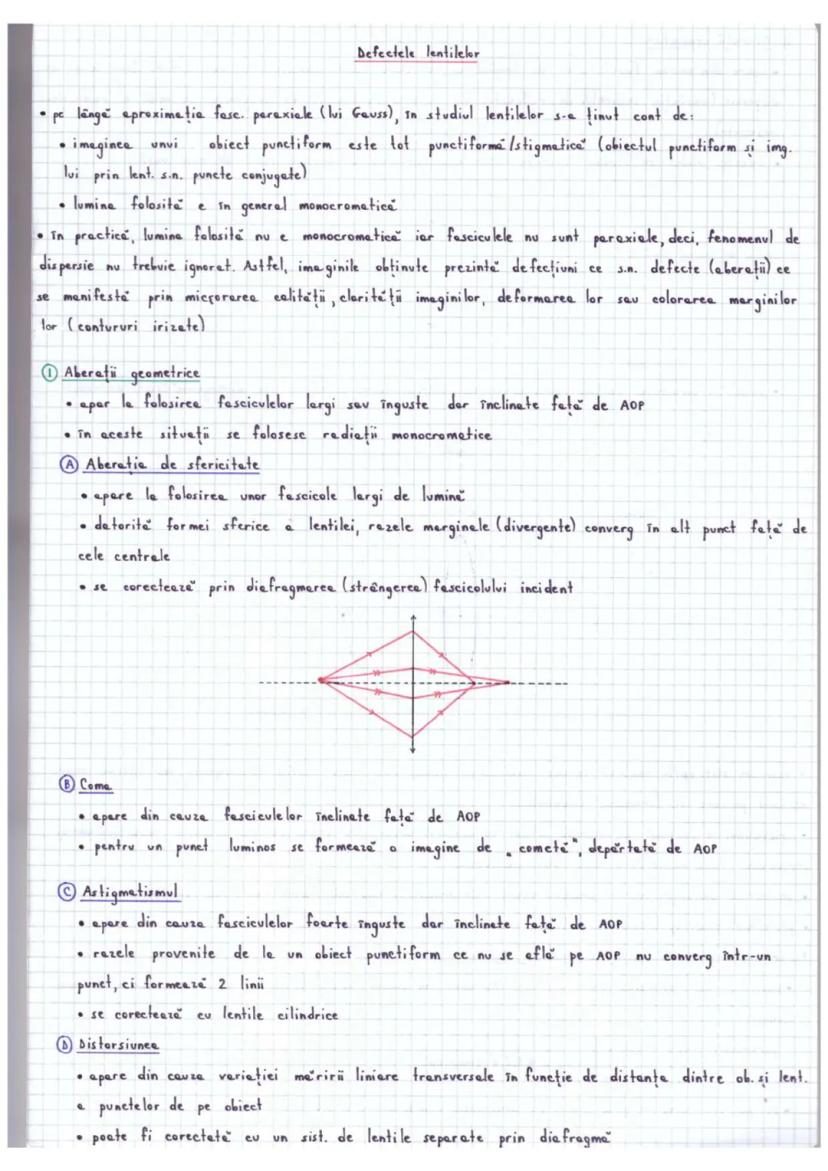 Defectele lentilelor
• pe lângă aproximația fasc. paraxiale (lui Gauss), în studiul lentilelor s-a ținut cont de:
• imaginea unui obiect punctiform este tot punctiformă/stigmatică (obiectul punctiform și img.
lui prin lent. s.n. puncte conjugate)
• lumina folosită e în general monocromatică
• în practică, lumina folosită nu e monocromatică iar fasciculele nu sunt paraxiale, deci, fenomenul de
dispersie nu trebuie ignorat. Astfel, imaginile obținute prezintă defecțiuni ce s.n. defecte (aberații) ce
se manifestă prin micșorarea calității, clarității imaginilor, deformarea lor sau colorarea marginilor
lor (contururi irizate)
① Aberații geometrice
• apar la folosirea fasciculelor largi sau înguste dar înclinate față de AOP
• în aceste situații se folosesc radiații monocromatice
Ⓐ Aberația de sfericitate
• apare la folosirea unor fascicole largi de lumină
• datorită formei sferice a lentilei, razele marginale (divergente) converg în alt punct față de
cele centrale
• se corectează prin diafragmarea (strângerea) fascicolului incident
Ⓑ Coma
• apare din cauza fasciculelor înclinate față de AOP
• pentru un punct luminos se formează o imagine de „cometă", depărtată de AOP
Ⓒ Astigmatismul
• apare din cauza fasciculelor foarte înguste dar înclinate față de AOP
• razele provenite de la un obiect punctiform ce nu se află pe AOP nu converg într-un
punct, ci formează 2 linii
• se corectează cu lentile cilindrice
Ⓓ Distorsiunea
• apare din cauza variației măririi liniare transversale în funcție de distanța dintre ob. și lent.
a punctelor de pe obiect
• poate fi corectată cu un sist. de lentile separate prin diafragmă